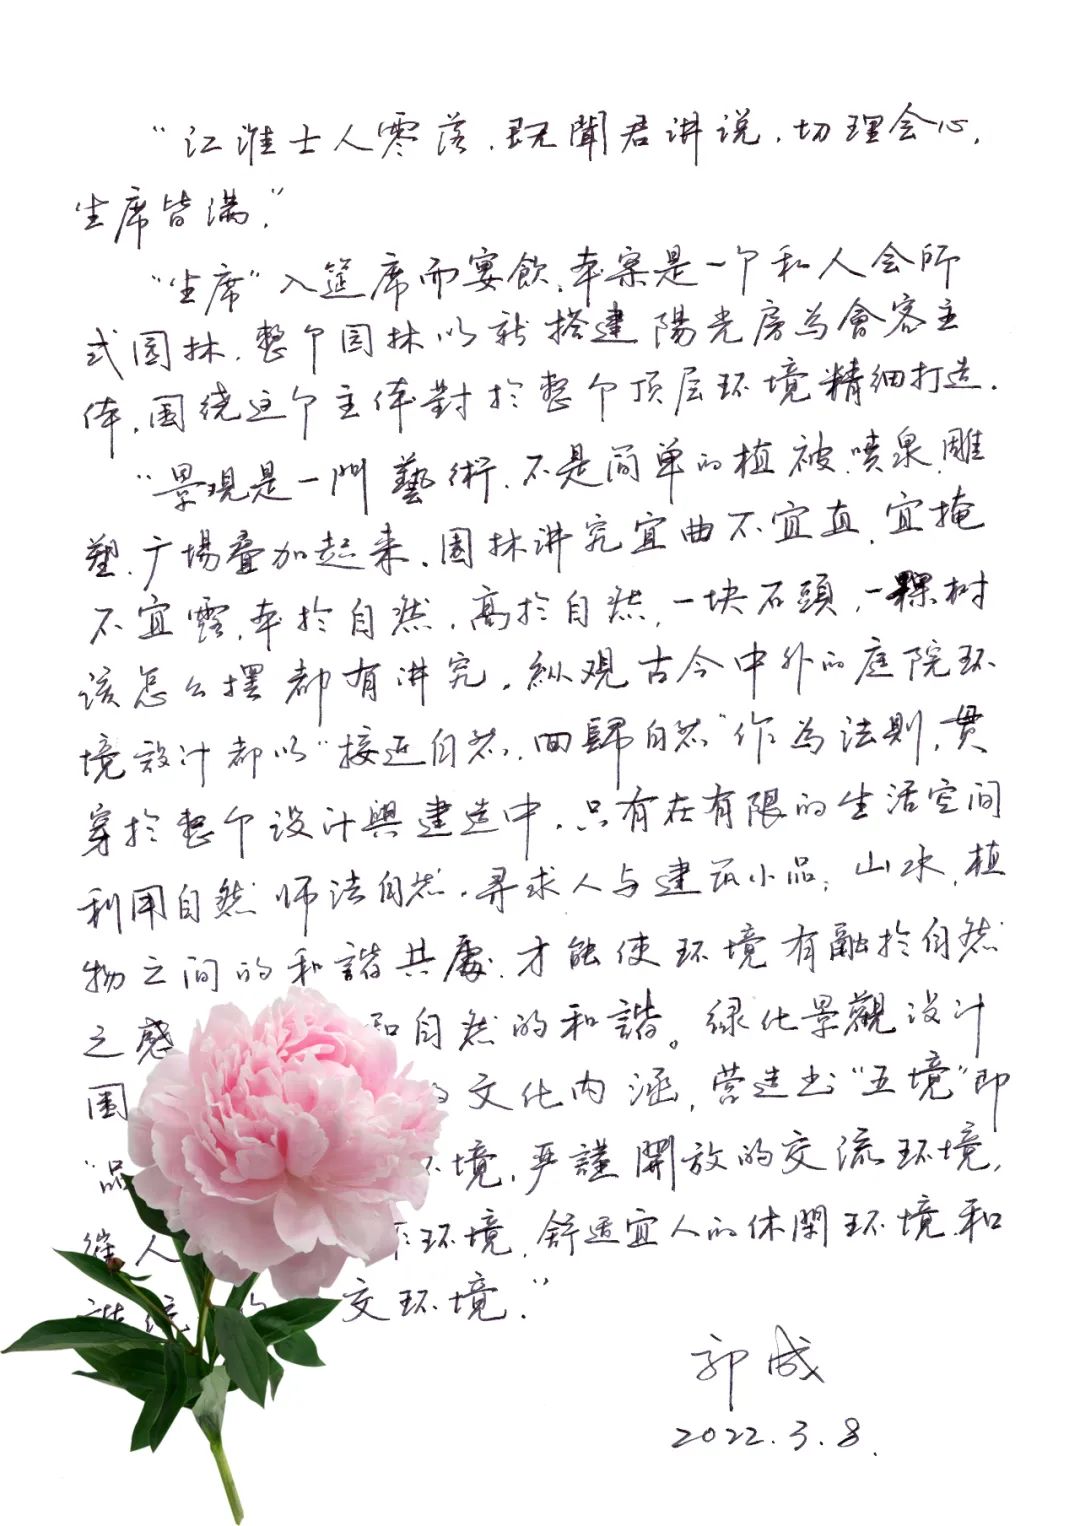 “江淮士人零落.既聞君讲说.切理会心,
坐席皆满.”
“坐席”入筵席而宴飲.本案是一个私人会所
式园林.整个园林以新搭建陽光房为會客主
体.围绕这个主体對於整个顶层环境精细打造.
“景观是一門藝術.不是简单的植被.喷泉.雕
塑.广場叠加起来.園林讲究宜曲不宜直.宜掩
不宜露.本於自然.高於自然,一块石頭,一棵树
该怎么摆都有讲究.纵观古今中外的庭院环
境设计都以“接近自然.回歸自然”作为法則.贯
穿於整个设计與建造中.只有在有限的生活空间
利用自然 师法自然.寻求人与建筑小品;山水.植
物之间的和諧共處.才能使环境有融於自然
之感 和自然的和諧。绿化景觀设计
围 的文化内涵,营造出“五境”即
“品 环境.严謹開放的交流环境,
催人 作环境.舒适宜人的休閑环境.和
諧统 交环境.”
郭成
2022.3.8.